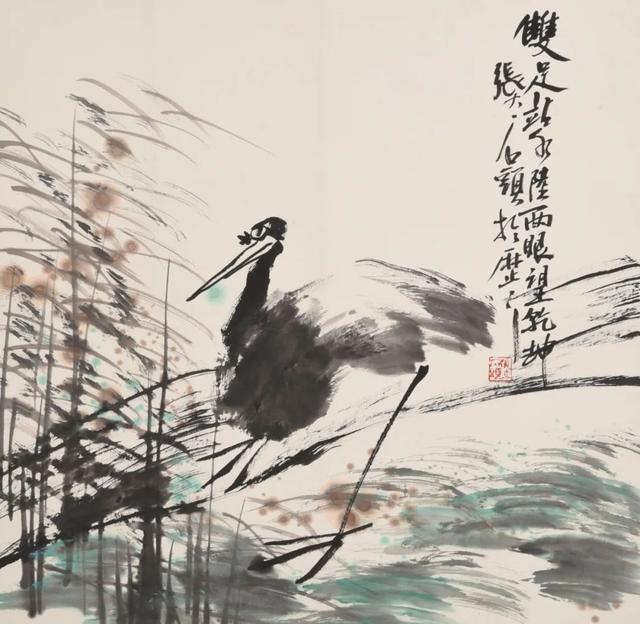 雙足站水陸兩眼望乾坤
張大石頭於歷下